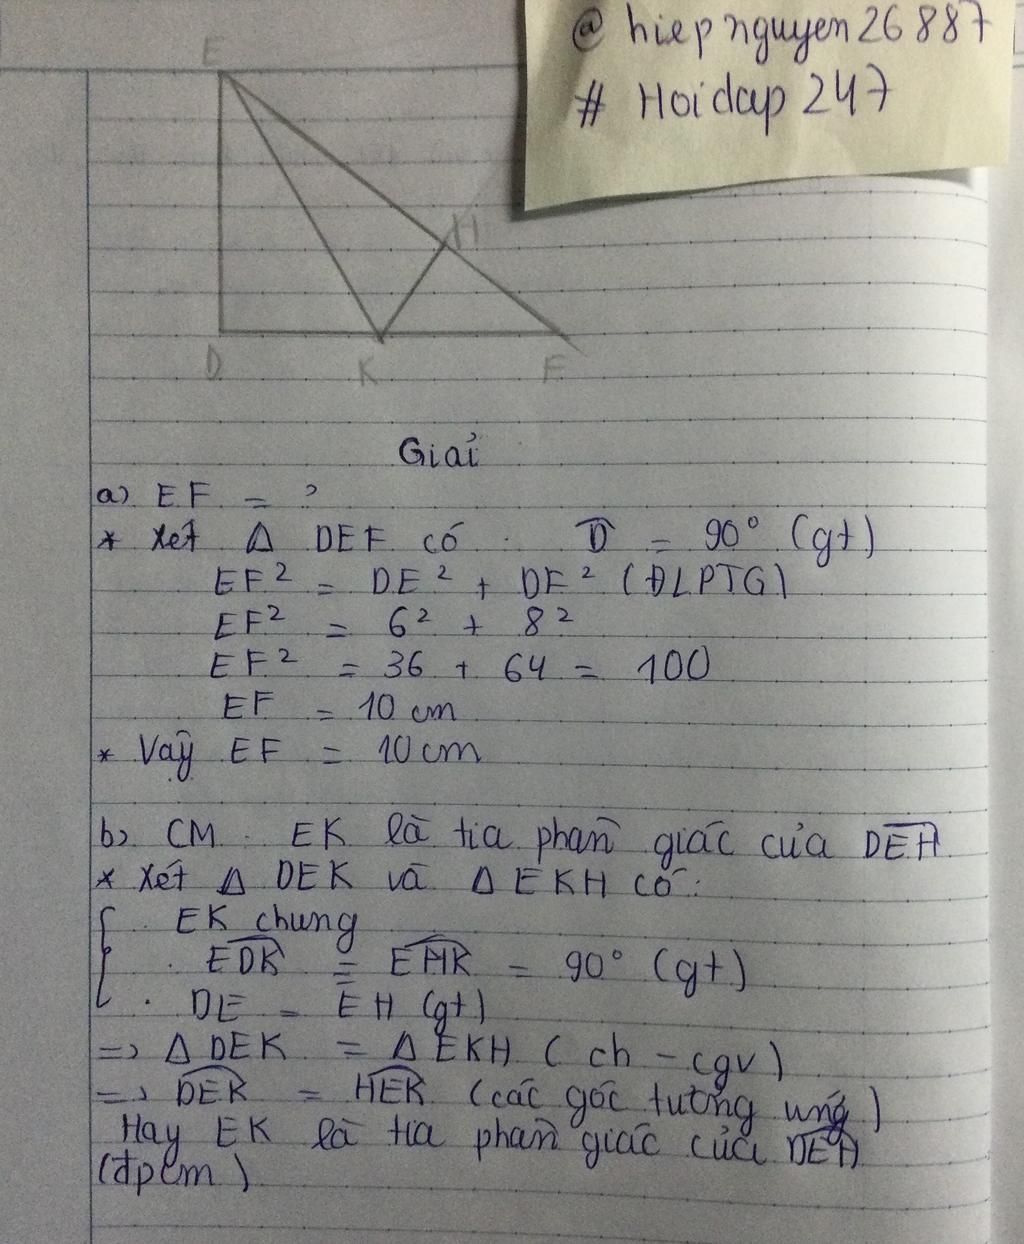 @ hiepnguyen26887
# Hoidap 247
E
H
D K F
Giải
a) EF = ?
* Xét Δ DEF có D̂ = 90° (gt)
EF² = DE² + DF² (ĐLPTG)
EF² = 6² + 8²
EF² = 36 + 64 = 100
EF = 10 cm
* Vậy EF = 10 cm
b) CM : EK là tia phân giác của DEH
* Xét Δ DEK và Δ EKH có :
EK chung
EDK = EHK = 90° (gt)
DE = EH (gt)
=> Δ DEK = Δ EKH (ch - cgv)
=> DEK = HEK (các góc tương ứng)
Hay EK là tia phân giác của DEH
(đpcm)